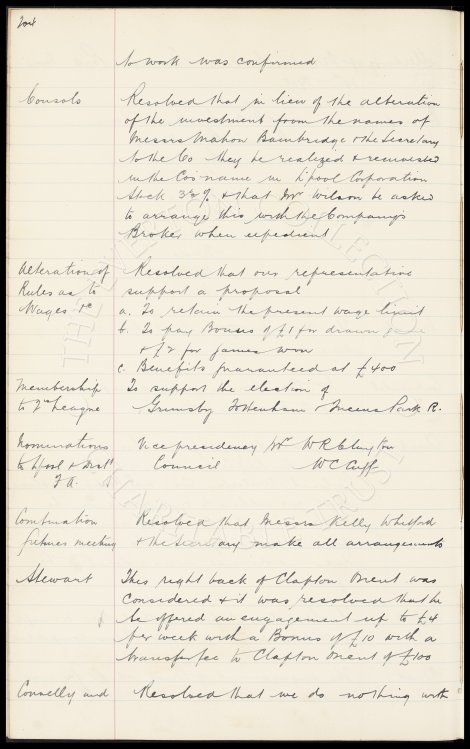 204
to work was confirmed
Consols Resolved that in lieu of the alteration
of the investment from the names of
Messrs Mahon Bainbridge & the Secretary
to the Co they be realized & reinvested
in the Co's name in L'pool Corporation
Stock 3½% & that Mr Wilson be asked
to arrange this with the Company's
Broker when expedient
Alteration of Resolved that our representative
Rules as to support a proposal
Wages &c a. To retain the present wage limit
b. To pay Bonus of £1 for drawn game
& £2 for games won
c. Benefits guaranteed at £400
Membership To support the election of
to 2nd League Grimsby Tottenham & Queens Park R.
Nominations Vice presidency Mr W R Clayton
to L'pool & Dist. Council W C Cuff
F A.
Combination Resolved that Messrs Kelly Whitford
fixtures meeting & the Secretary make all arrangements
Stewart This right back of Clapton Orient was
considered & it was resolved that he
be offered an engagement up to £4
per week with a Bonus of £10 with a
transfer fee to Clapton Orient of £100
Connelly and Resolved that we do nothing with
THE EVERTON COLLECTION
CHARITABLE TRUST